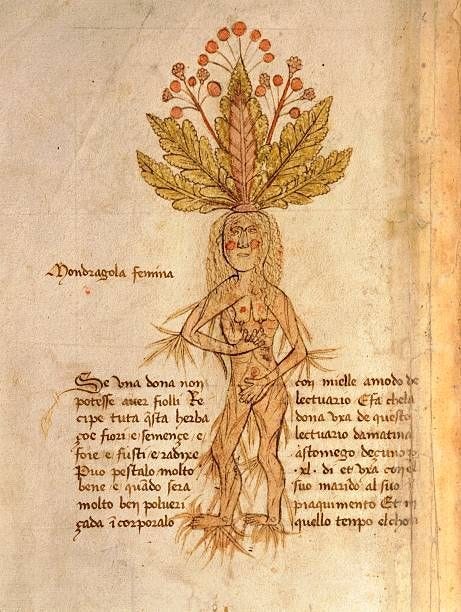 Mondragola femina
Se vna dona non
potesse auer fiolli Re
cipe tuta q̃sta herba
çoe fiori e semençe e
foie e fusti e radixe
Puo pestalo molto
bene e quãdo sera
molto ben polueri
çada ĩcorporalo
con mielle amodo de
lectuario E fa chela
dona vxa de questo
lectuario damatina
astomego deçuno
.xl. di et vxa con el
suo marido al suo
piaquimento Et in
quello tenpo el